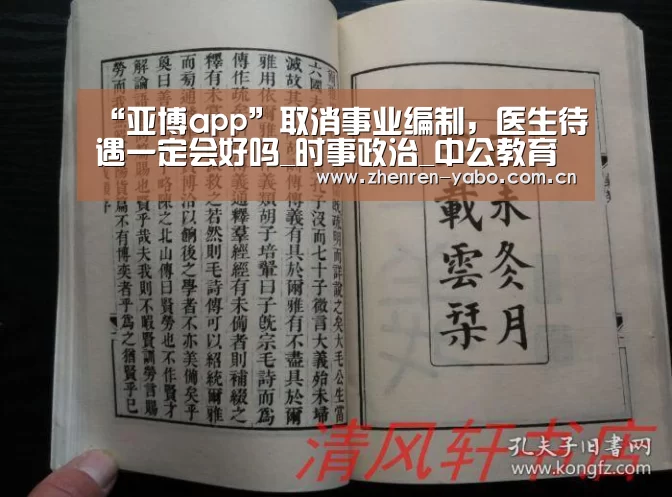 “亚博app”取消事业编制，医生待
遇一定会好吗_时事政治_中公教育
www.zhenren-yabo.com.cn
未冬月
載雲栞
六國
孔子沒而七十子微言大義殆未墳
滅故其
傳義有具於爾雅有不盡具於爾
雅用依爾
義類胡子培翬曰子旣宗毛詩而爲
傳作疏矣
義通釋羣經經有未備者則補綴之
釋有未
救之若然則毛詩傳可以紹統爾雅
而
通
博洽以餉後之學者不亦美備矣乎
奐曰善
乎略陳之北山傳曰賢勞也不作賢才
解論語
賢乎哉夫我則不暇賢訓勞言賜
勞而我
貨篇不有博奕者乎爲之猶賢乎已
清风轩书店
孔夫子旧书网
www.kongfz.com